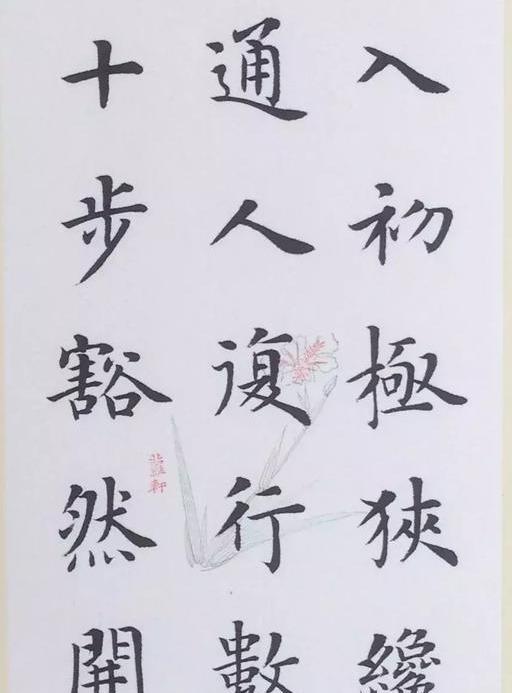 入初極狹纔
通人復行數
十步豁然開